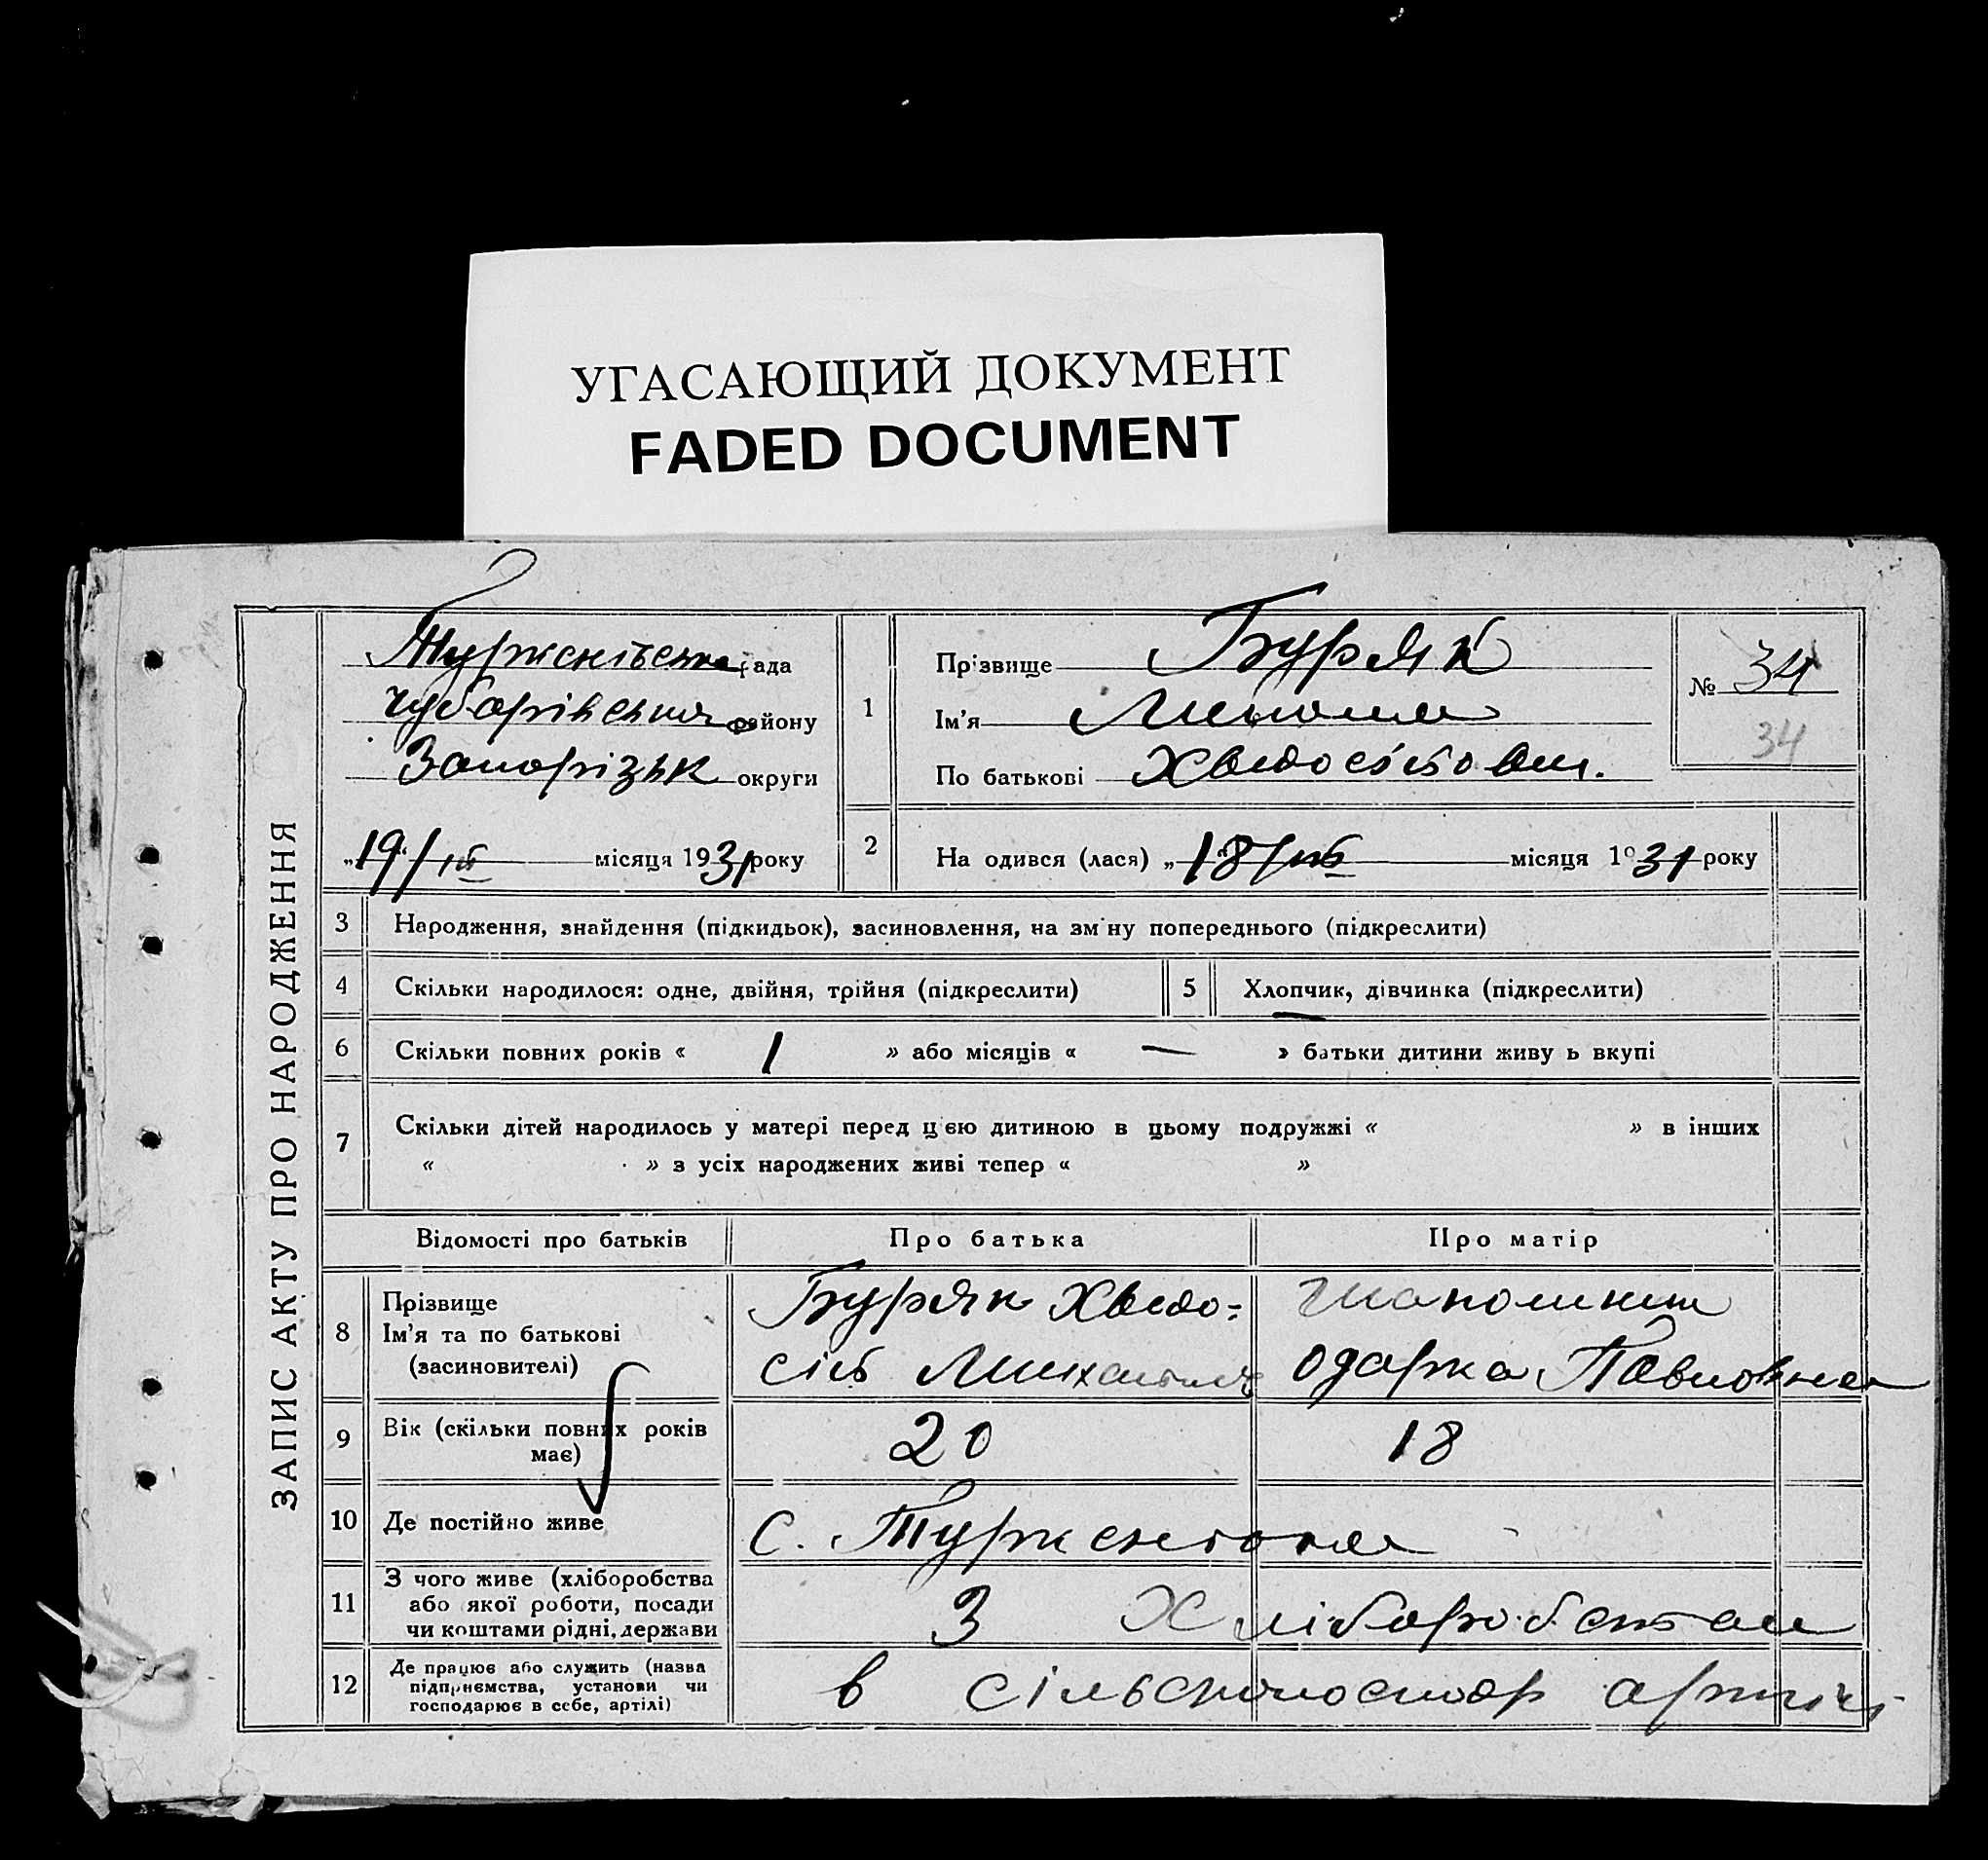 УГАСАЮЩИЙ ДОКУМЕНТ
FADED DOCUMENT
ЗАПИС АКТУ ПРО НАРОДЖЕННЯ
рада
району
Запорізьк округи
„19“/ місяця 1931 року
1
Прізвище Буряк
Ім’я
По батькові
№ 34
34
2
На одився (лася) „18“/ місяця 1931 року
3 Народження, знайдення (підкидьок), засиновлення, на зміну попереднього (підкреслити)
4 Скільки народилося: одне, двійня, трійня (підкреслити)
5 Хлопчик, дівчинка (підкреслити)
6 Скільки повних років « 1 » або місяців « — » батьки дитини живу ь вкупі
7 Скільки дітей народилось у матері перед цією дитиною в цьому подружжі « » в інших
« » з усіх народжених живі тепер « »
Відомості про батьків Про батька Про матір
8 Прізвище
Ім’я та по батькові
(засиновителі)
Буряк Хведо-
сій
Одарка Павловна
9 Вік (скільки повних років
має)
20 18
10 Де постійно живе
с. Турженівка
11 З чого живе (хліборобства
або якої роботи, посади
чи коштами рідні, держави
З Хліборобства
12 Де працює або служить (назва
підприємства, установи чи
господарює в себе, артілі)
в сільськогосподар артілі